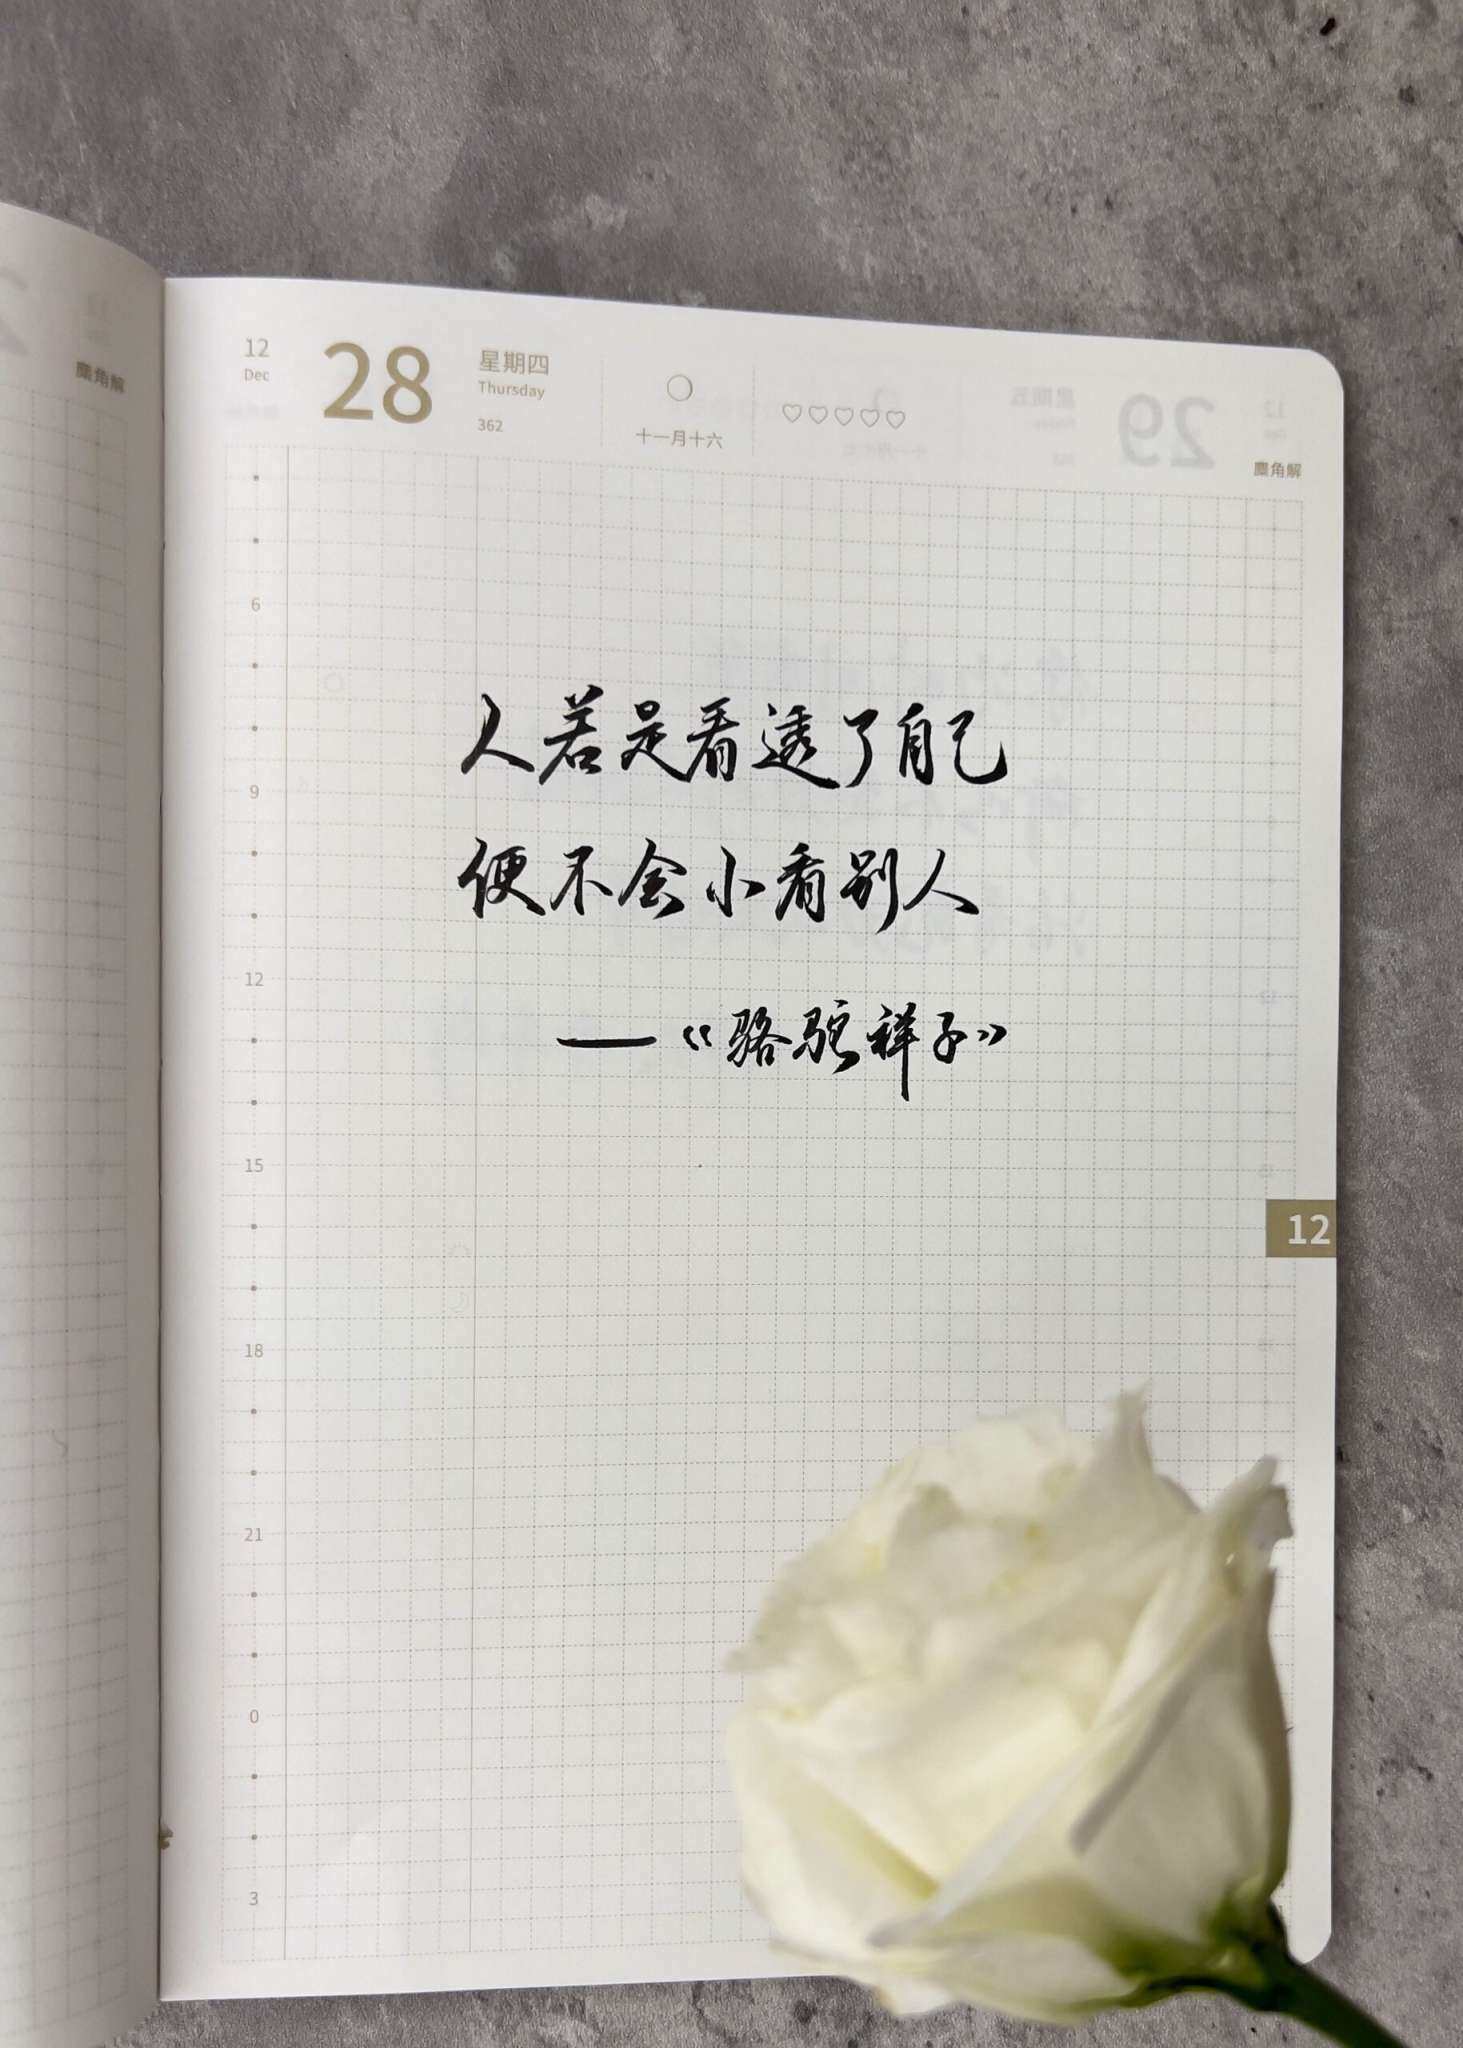 12
Dec
28
星期四
Thursday
362
十一月十六
麋角解
麋角解
6
9
12
15
18
21
0
3
人若是看透了自己
便不会小看别人
——《骆驼祥子》
12